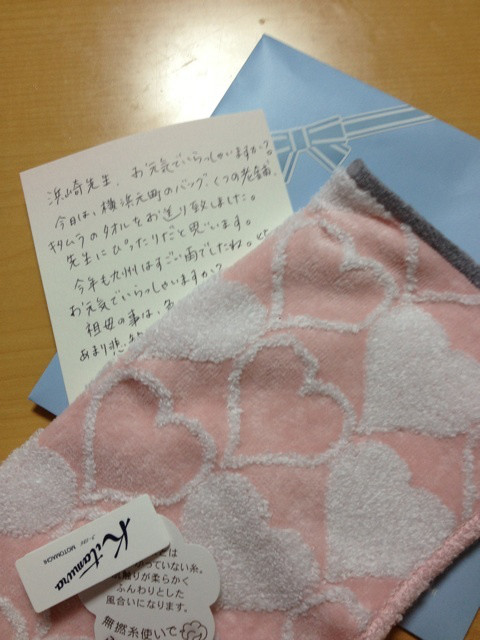 浜崎先生、お元気でいらっしゃいますか?。
今日は、横浜元町のバッグ、くつの老舗、
キタムラのタオルをお送り致しました。
先生にぴったりだと思います。
今年も九州はすごい雨でしたね。
お元気でいらっしゃいますか?
祖母の事は、
あまり悲
Kitamura
MOTOMACHI
とは
っていない糸。
触りが柔らかく
ふんわりとした
風合いになります。
無撚糸使いで